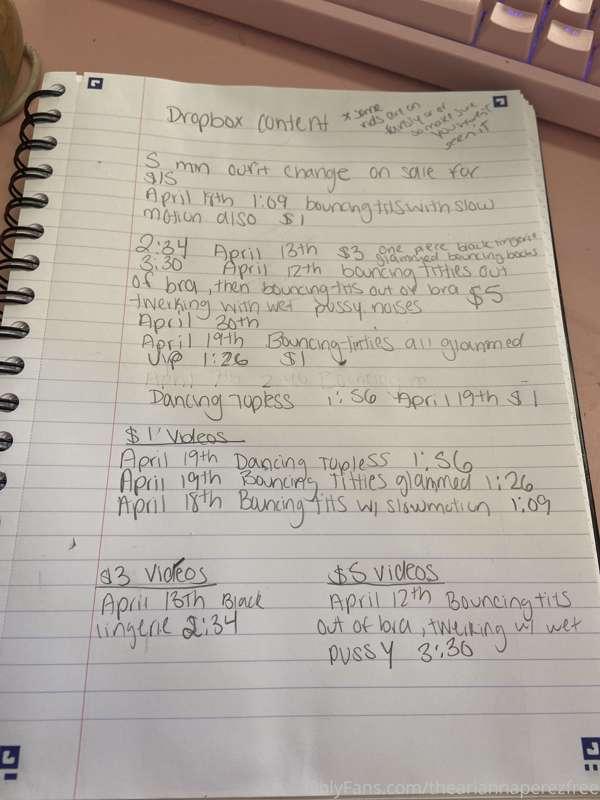 Dropbox content
* some
vids are on
so make sure
you haven't
seen it
5 min outfit change on sale for
$15
April 18th 1:09 bouncing tits with slow
motion also $1
2:34 April 13th $3 one piece black lingerie
glammed bouncing boobs
3:30 April 12th bouncing titties out
of bra, then bouncing tits out of bra $5
twerking with wet pussy noises
April 30th
April 19th Bouncing titties all glammed
up 1:26 $1
Dancing Topless 1:56 April 19th $1
$1 Videos
April 19th Dancing Topless 1:56
April 19th Bouncing Titties glammed 1:26
April 18th Bouncing tits w/ slowmotion 1:09
$3 Videos
April 13th Black
lingerie 2:34
$5 videos
April 12th Bouncing tits
out of bra, twerking w/ wet
pussy 3:30
OnlyFans.com/theariannaperezfree